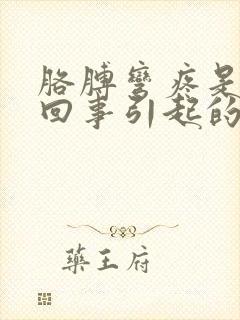 胳膊弯疼是
回事引起的
藥王府